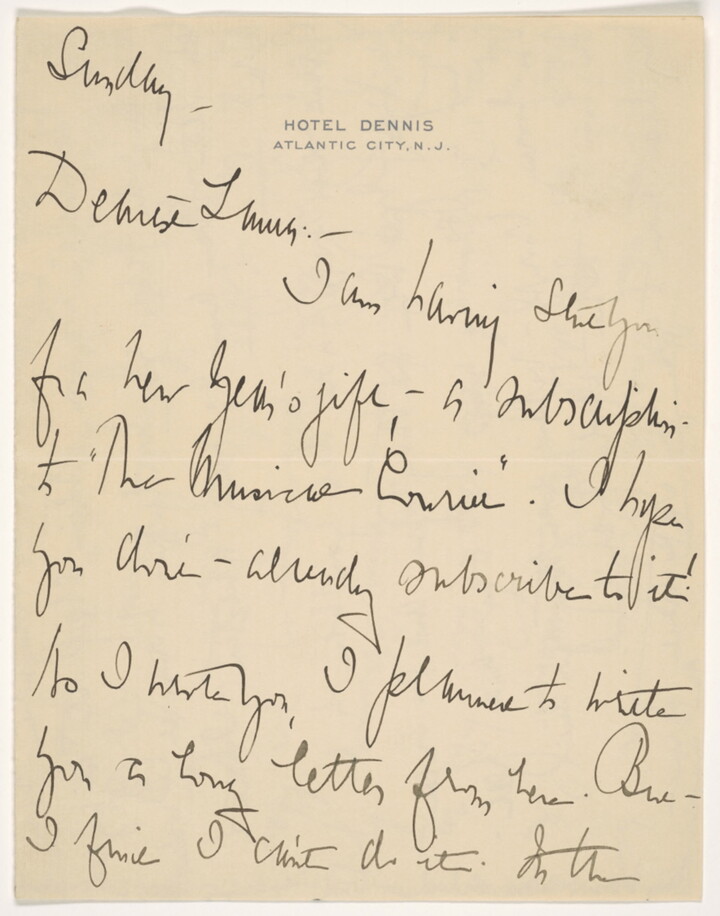 Sunday –
HOTEL DENNIS
ATLANTIC CITY, N.J.
Dearest Laura:–
I am having sent you
for a New Year's gift, – a subscription
to "The Musical Courier". I hope
you don't – already subscribe to it!
As I wrote you, I planned to write
you a long letter from here. But –
I find I can't do it. In the